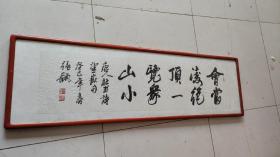 會當
凌絕
頂一
覽眾
山小
唐人杜甫詩
望嶽句